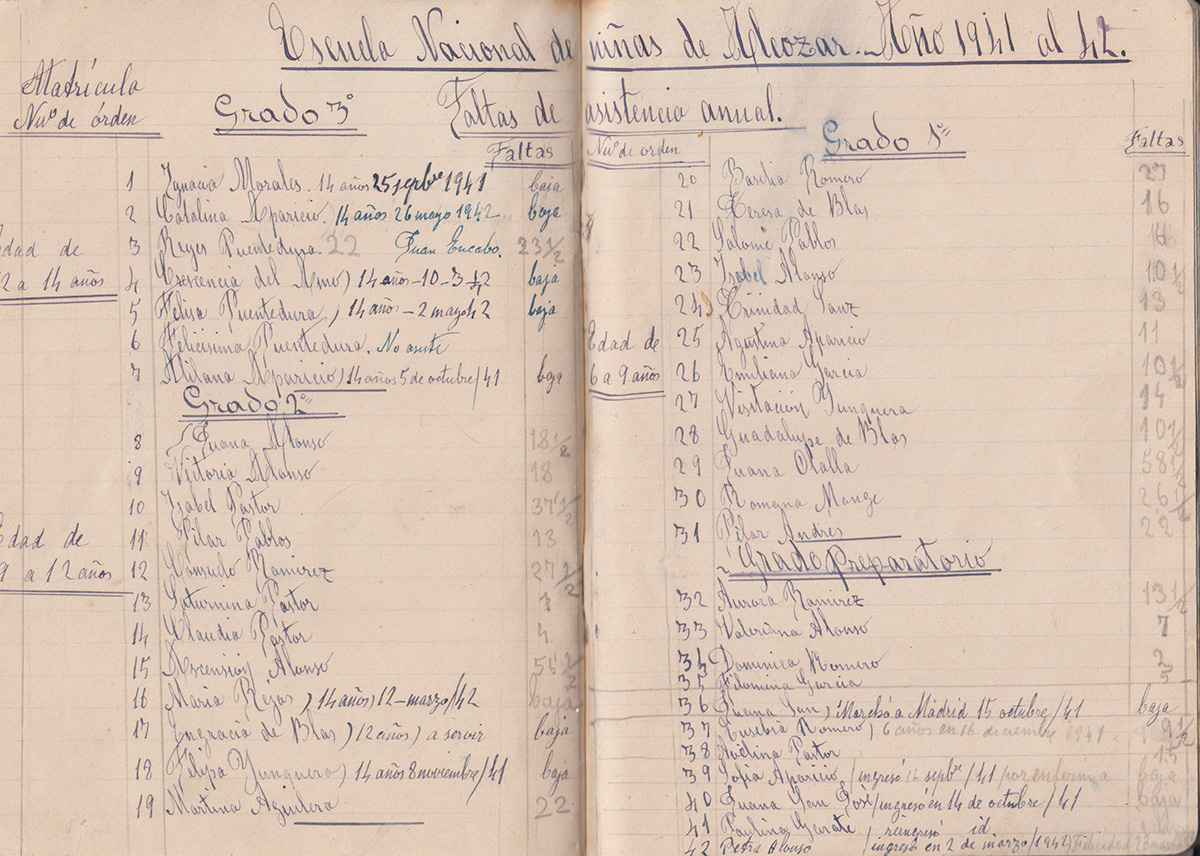 Escuela Nacional de niñas de Alcozar. Año 1941 al 42.
Matrícula
Nuº de órden
Grado 3º
Faltas de asistencia anual.
Faltas
1 Ignacia Morales. 14 años 25 sepbre 1941 baja
2 Catalina Aparicio. 14 años 26 mayo 1942 baja
Edad de
12 a 14 años
3 Reyes Puentedura. 22 Juan Encabo. 23 1/2
4 Crescencia del Amo) 14 años-10-3-42 baja
5 Felisa Puentedura) 14 años-2 mayo 42 baja
6 Felicísima Puentedura. No asiste
7 Aparicio) 14 años 5 de octubre/41 baja
Grado 2º
8 Juana Alonso 18 1/2
9 Victoria Alonso 18
10 Isabel Pastor 37 1/2
Edad de
9 a 12 años
11 Pilar Pablos 13
12 Consuelo Ramirez 27 1/2
13 Saturnina Pastor
14 Claudia Pastor 4
15 Ascensión Alonso 55 1/2
16 Maria Rejas) 14 años) 12-marzo/42 baja
17 Engracia de Blas) 12 años) a servir baja
18 Filipa Yunguera) 14 años 8 noviembre/41 baja
19 Martina Aguilera 22
Nuº de orden
Grado 1º
Faltas
20 Basilia Romero 27
21 Teresa de Blas 16
22 Salomé Pablos 16
23 Isabel Alonso 10 1/2
24 Trinidad Sanz 13
Edad de
6 a 9 años
25 Agustina Aparicio 11
26 Emiliana Garcia 10 1/2
27 Visitación Yunguera 14
28 Guadalupe de Blas 10 1/2
29 Juana Olalla 58 1/2
30 Romana Mange 26 1/2
31 Pilar Andres 22
Grado Preparatorio
32 Aurora Ramirez 13 1/2
33 Valeriana Alonso 7
34 Dominica Romero 2
35 Filomina Garcia 5
36 Juana San) Marchó a Madrid 15 octubre/41 baja
37 Eusebia Romero) 6 años en 16 diciembre 1941 9 1/2
38 Avelina Pastor 15
39 Sofia Aparicio /ingresó 16 sepbre/41 por enferma baja
40 Juana San José /ingresó en 14 de octubre/41 baja
41 Paulina Garate / reingresó id
42 Petra Alonso ingresó en 2 de marzo/1942) Felicidad